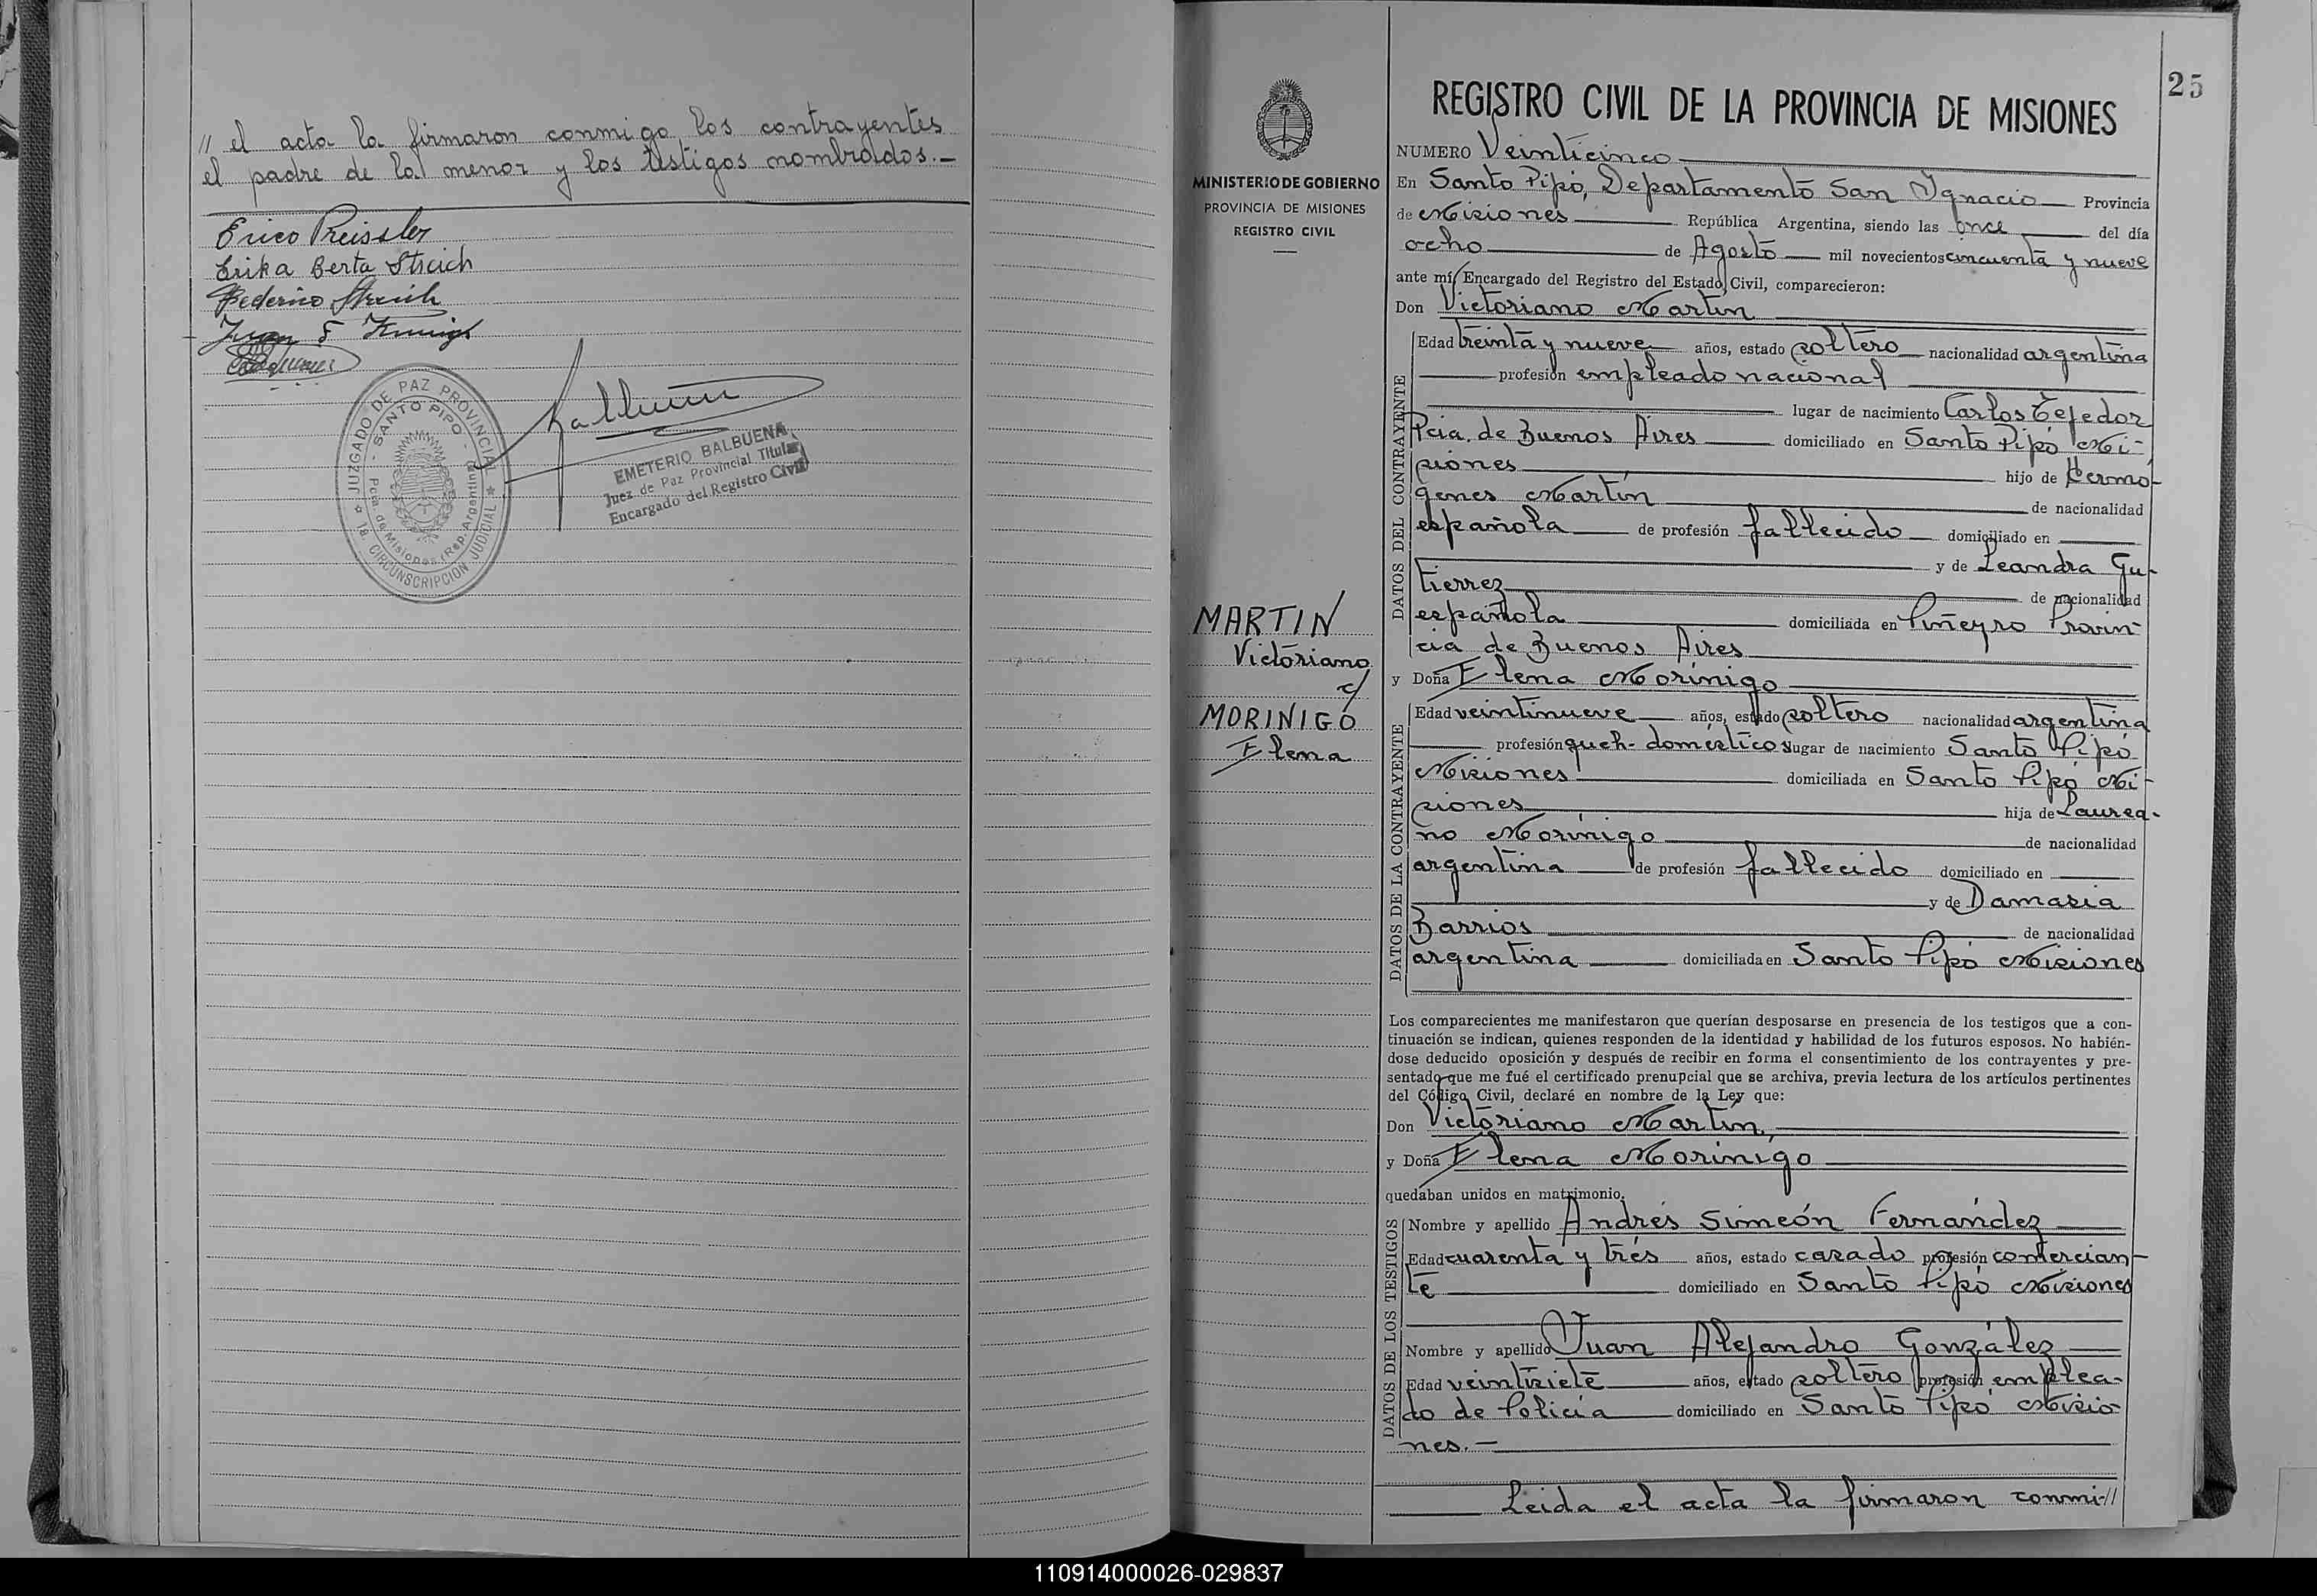 // el acta la firmaron conmigo los contrayentes
el padre de la menor y los testigos nombrados.—
Erico Preissler
Erika Berta Streich
Federico Streich
Juan F
JUZGADO DE PAZ PROVINCIAL
- SANTO PIPO -
Pcia. de Misiones (Rep. Argentina)
1a. CIRCUNSCRIPCION JUDICIAL
EMETERIO BALBUENA
Juez de Paz Provincial Titular
Encargado del Registro Civil
25
MINISTERIO DE GOBIERNO
PROVINCIA DE MISIONES
REGISTRO CIVIL
MARTIN
Victoriano
c/
MORINIGO
Elena
REGISTRO CIVIL DE LA PROVINCIA DE MISIONES
NUMERO Veinticinco
En Santo Pipó, Departamento San Ignacio Provincia
de Misiones República Argentina, siendo las once del día
ocho de Agosto mil novecientos cincuenta y nueve
ante mí, Encargado del Registro del Estado Civil, comparecieron:
Don Victoriano Martín
DATOS DEL CONTRAYENTE
Edad treinta y nueve años, estado soltero nacionalidad argentina
profesión empleado nacional
lugar de nacimiento Carlos Tejedor
Pcia. de Buenos Aires domiciliado en Santo Pipó Mi-
siones hijo de Hermó-
genes Martín de nacionalidad
española de profesión fallecido domiciliado en
y de Leandra Gu-
tierrez de nacionalidad
española domiciliada en Piñeyro Provin-
cia de Buenos Aires
y Doña Elena Morínigo
DATOS DE LA CONTRAYENTE
Edad veintinueve años, estado soltero nacionalidad argentina
profesión queh. doméstico lugar de nacimiento Santo Pipó
Misiones domiciliada en Santo Pipó Mi-
siones hija de Laurea-
no Morínigo de nacionalidad
argentina de profesión fallecido domiciliado en
y de Damasia
Barrios de nacionalidad
argentina domiciliada en Santo Pipó Misiones
Los comparecientes me manifestaron que querían desposarse en presencia de los testigos que a con-
tinuación se indican, quienes responden de la identidad y habilidad de los futuros esposos. No habién-
dose deducido oposición y después de recibir en forma el consentimiento de los contrayentes y pre-
sentado que me fué el certificado prenupcial que se archiva, previa lectura de los artículos pertinentes
del Código Civil, declaré en nombre de la Ley que:
Don Victoriano Martín
y Doña Elena Morínigo
quedaban unidos en matrimonio.
DATOS DE LOS TESTIGOS
Nombre y apellido Andrés Simeón Fernández
Edad cuarenta y trés años, estado casado profesión comercian-
te domiciliado en Santo Pipó Misiones
Nombre y apellido Juan Alejandro González
Edad veintisiete años, estado soltero profesión emplea-
do de Policía domiciliado en Santo Pipó Misio-
nes.—
Leida el acta la firmaron conmi-//
110914000026-029837